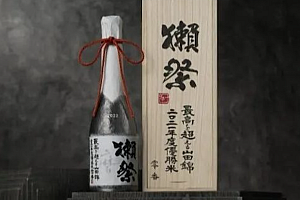 獺祭
最高を超える山田錦
二〇二一年度優勝米
零番
獺祭
最高を超える山田錦